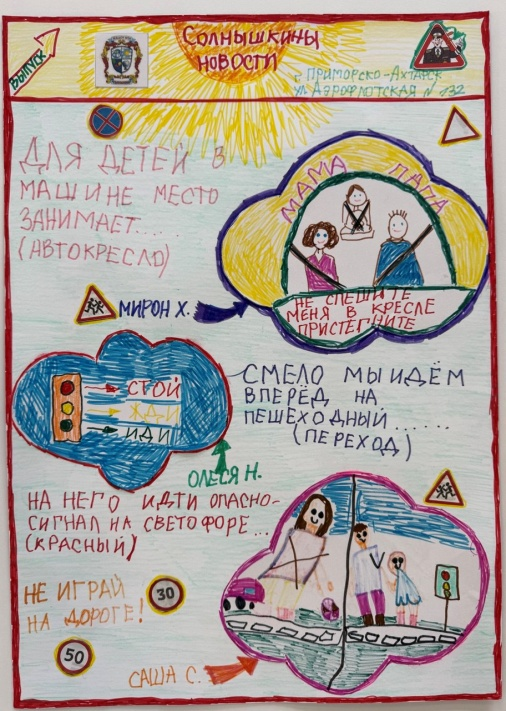 ВЫПУСК
Солнышкины
новости
г. ПРИМОРСКО-АХТАРСК
УЛ АЭРОФЛОТСКАЯ N 132
ДЛЯ ДЕТЕЙ В
МАШИНЕ МЕСТО
ЗАНИМАЕТ....
(АВТОКРЕСЛО)
МАМА ПАПА
НЕ СПЕШИТЕ
МЕНЯ В КРЕСЛЕ
ПРИСТЕГНИТЕ
МИРОН Х.
СТОЙ
ЖДИ
ИДИ
СМЕЛО МЫ ИДЁМ
ВПЕРЁД НА
ПЕШЕХОДНЫЙ......
(ПЕРЕХОД)
ОЛЕСЯ Н.
НА НЕГО ИДТИ ОПАСНО-
СИГНАЛ НА СВЕТОФОРЕ...
(КРАСНЫЙ)
НЕ ИГРАЙ
НА ДОРОГЕ!
30
50
САША С.